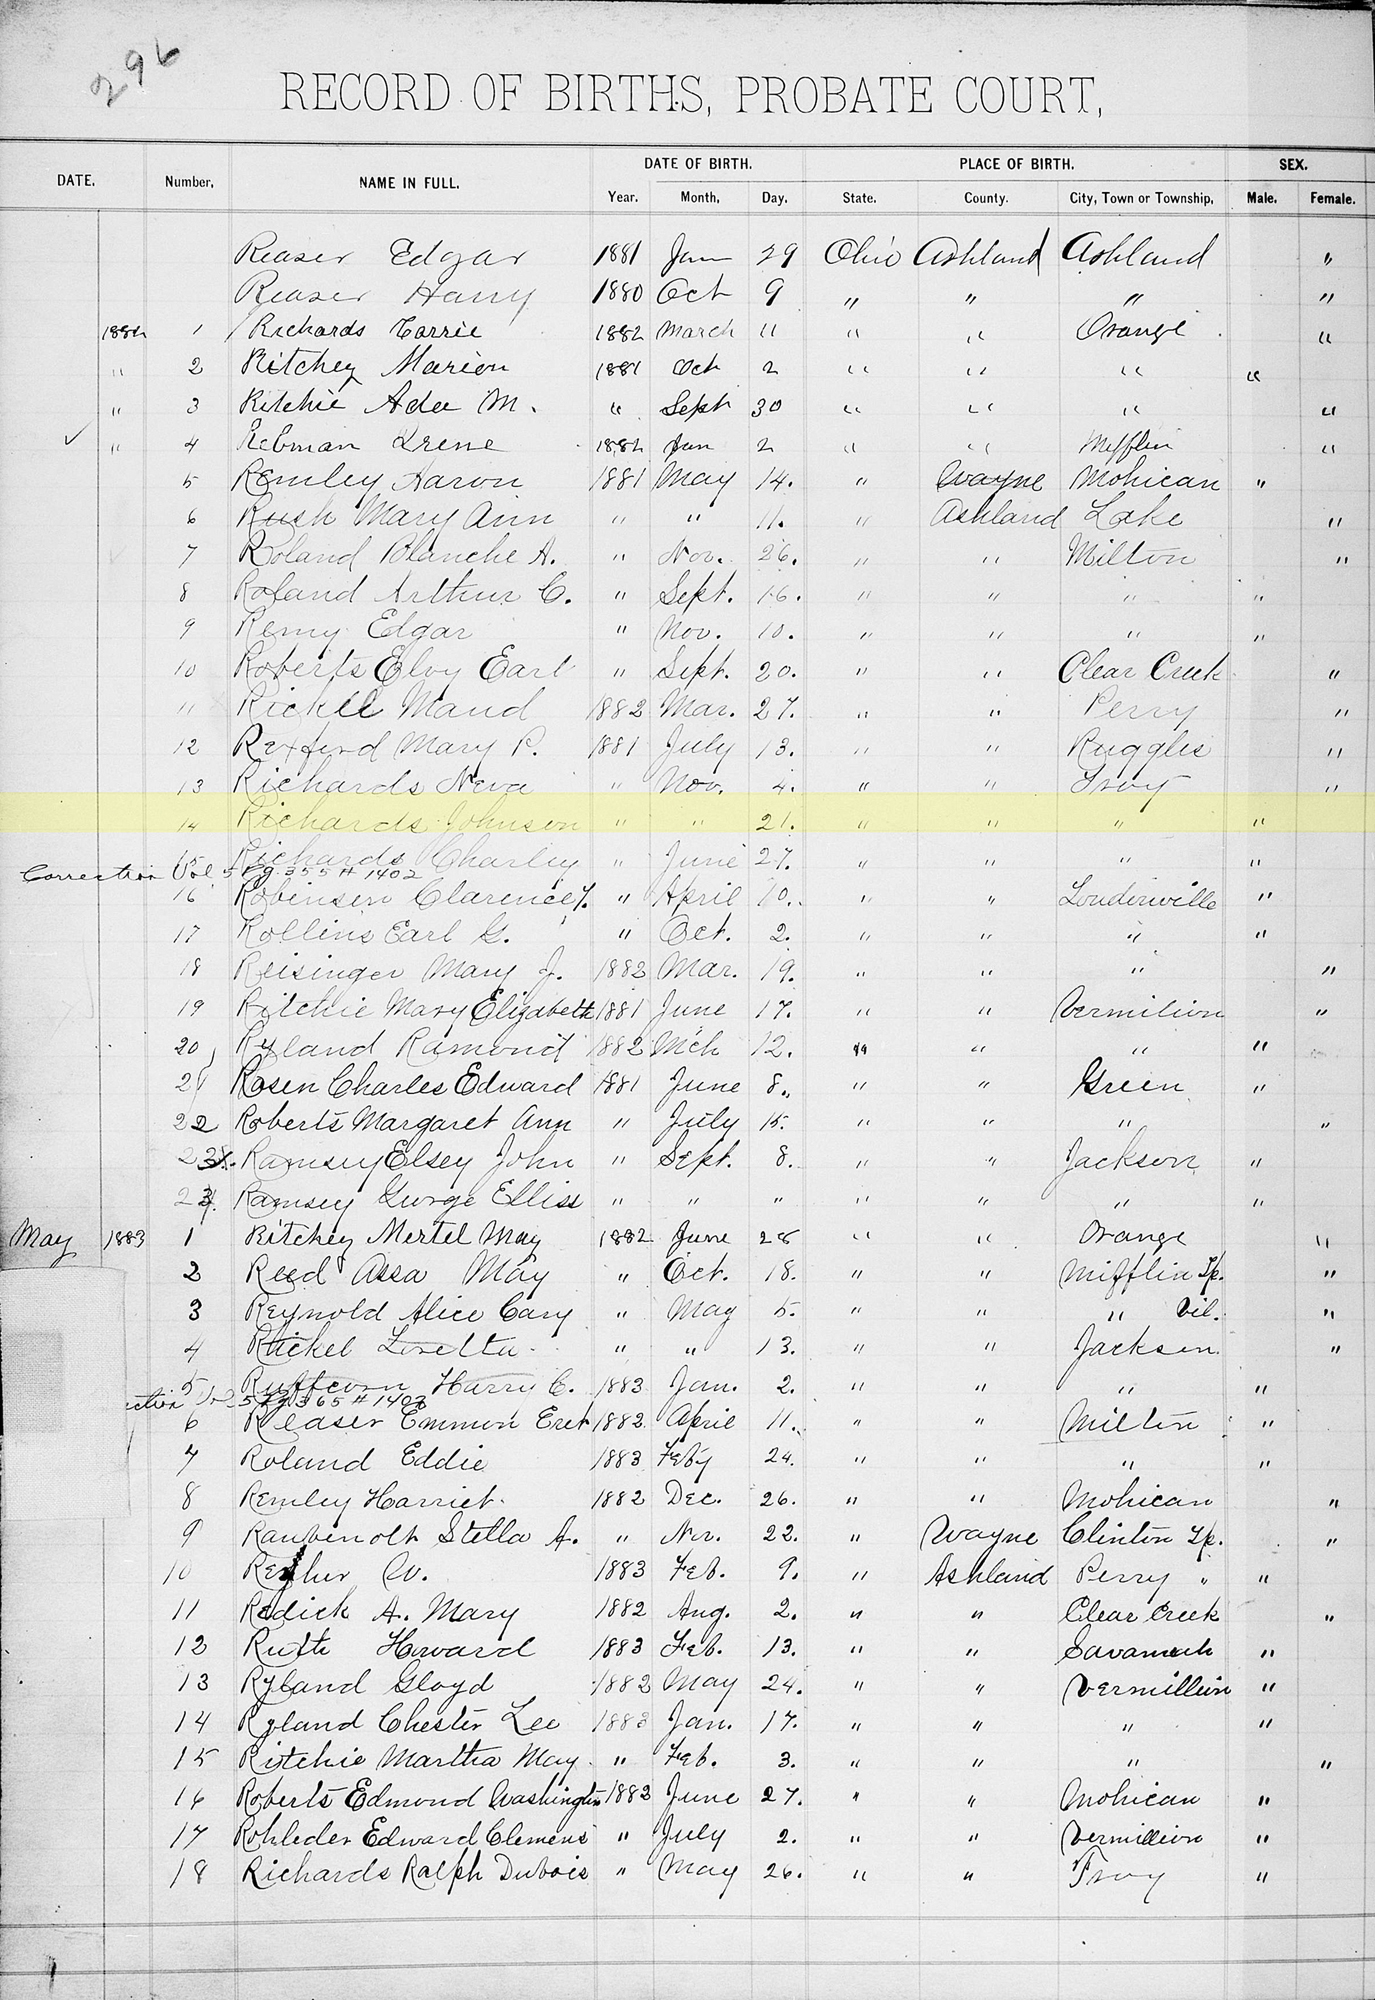 296
RECORD OF BIRTHS, PROBATE COURT,
DATE. Number, NAME IN FULL. DATE OF BIRTH. PLACE OF BIRTH. SEX.
Year. Month, Day. State. County. City, Town or Township, Male. Female.
Reaser Edgar 1881 Jan 29 Ohio Ashland Ashland "
Reaser Harry 1880 Oct 9 " " " "
1882 1 Richards Carrie 1882 March 11 " " Orange "
" 2 Ritchey Marion 1881 Oct 2 " " " "
" 3 Ritchie Ada M. " Sept 30 " " " "
" 4 Rebman Irene 1882 Jan 2 " " Mifflin "
5 Remley Aaron 1881 May 14. " Wayne Mohican "
6 Rush Mary Ann " " 11. " Ashland Lake "
7 Roland Blanche A. " Nov. 26. " " Milton "
8 Roland Arthur C. " Sept. 16. " " " "
9 Remy Edgar " Nov. 10. " " " "
10 Roberts Elvy Earl " Sept. 20. " " Clear Creek "
11 Rickel Maud 1882 Mar. 27. " " Perry "
12 Rexford Mary P. 1881 July 13. " " Ruggles "
13 Richards Neva " Nov. 4. " " Troy "
14 Richards Johnson " " 21. " " " "
15 Richards Charley " June 27. " " " "
Correction Vol 5 Pg. 355 # 1402
16 Robinson Clarence " April 10. " " Loudonville "
17 Rollins Earl G. " Oct. 2. " " " "
18 Reisinger Mary J. 1882 Mar. 19. " " " "
19 Ritchie Mary Elizabeth 1881 June 17. " " Vermilion "
20 Ryland Ramond 1882 Mch 12. " " " "
21 Rosen Charles Edward 1881 June 8. " " Green "
22 Roberts Margaret Ann " July 15. " " " "
23. Ramsey Elsey John " Sept. 8. " " Jackson "
24. Ramsey George Elliss " " " " " " "
May 1883 1 Ritchey Mertel May 1882 June 28 " " Orange "
2 Reed Assa May " Oct. 18. " " Mifflin Tp. "
3 Reynold Alice Cary " May 5. " " " Vil. "
4 Rickel Loretta " " 13. " " Jackson "
5 Ruffcorn Harry C. 1883 Jan. 2. " " " "
ction Vol 5 Pg 365 # 1402
6 Reaser Emmon Eret 1882 April 11. " " Milton "
7 Roland Eddie 1883 Feby 24. " " " "
8 Remley Harriet 1882 Dec. 26. " " Mohican "
9 Raubenolt Stella A. " Nov. 22. " Wayne Clinton Tp. "
10 W. 1883 Feb. 9. " Ashland Perry " "
11 Redick A. Mary 1882 Aug. 2. " " Clear Creek "
12 Ruth Howard 1883 Feb. 13. " " Savannah "
13 Ryland Gloyd 1882 May 24. " " Vermillion "
14 Ryland Chester Lee 1883 Jan. 17. " " " "
15 Ritchie Martha May " Feb. 3. " " " "
16 Roberts Edmond Washington 1882 June 27. " " Mohican "
17 Rohleder Edward Clemens " July 2. " " Vermillion "
18 Richards Ralph Dubois " May 26. " " Troy "